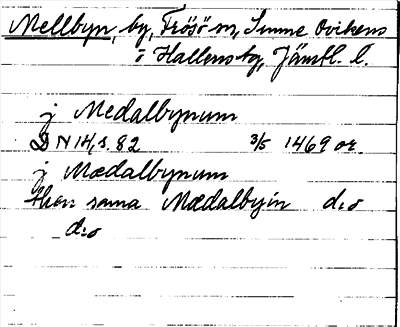 Mellbyn, by, Frösö sn, Sunne Ovikens
o Hallens tg, Jämtl. l.
j Medalbynum
DN 14, s. 82 3/5 1469 or.
j Mædalbynum
then sama Mædalbyin d:o
d:o